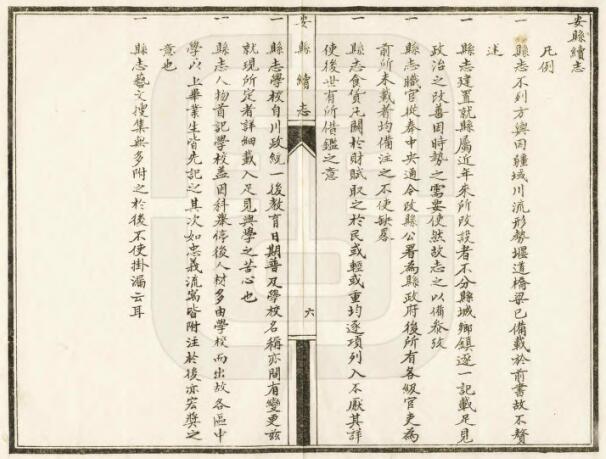 安縣續志
凡例
一 縣志不列方輿因疆域川流形勢堰道橋梁已備載於前書故不贅
述
一 縣志建置就縣屬近年來所改設者不分縣城鄉鎮逐一記載足見
政治之改善因時勢之需要使然故志之以備參攷
一 縣志職官從奉中央通令改縣公署為縣政府後所有各級官吏為
前所未載者均備注之不使缺畧
一 縣志食貨凡關於財賦取之於民或輕或重均逐項列入不厭其詳
使後世有所借鑑之意
安縣續志
六
一 縣志學校自川政統一後教育日期普及學校名稱亦間有變更玆
就現所定者詳細載入足見興學之苦心也
一 縣志人物首記學校盖因科舉停後人材多由學校而出故各區中
學以上畢業生皆先記之其次如忠義流寓皆附注於後亦宏獎之
意也
一 縣志藝文搜集無多附之於後不使掛漏云耳